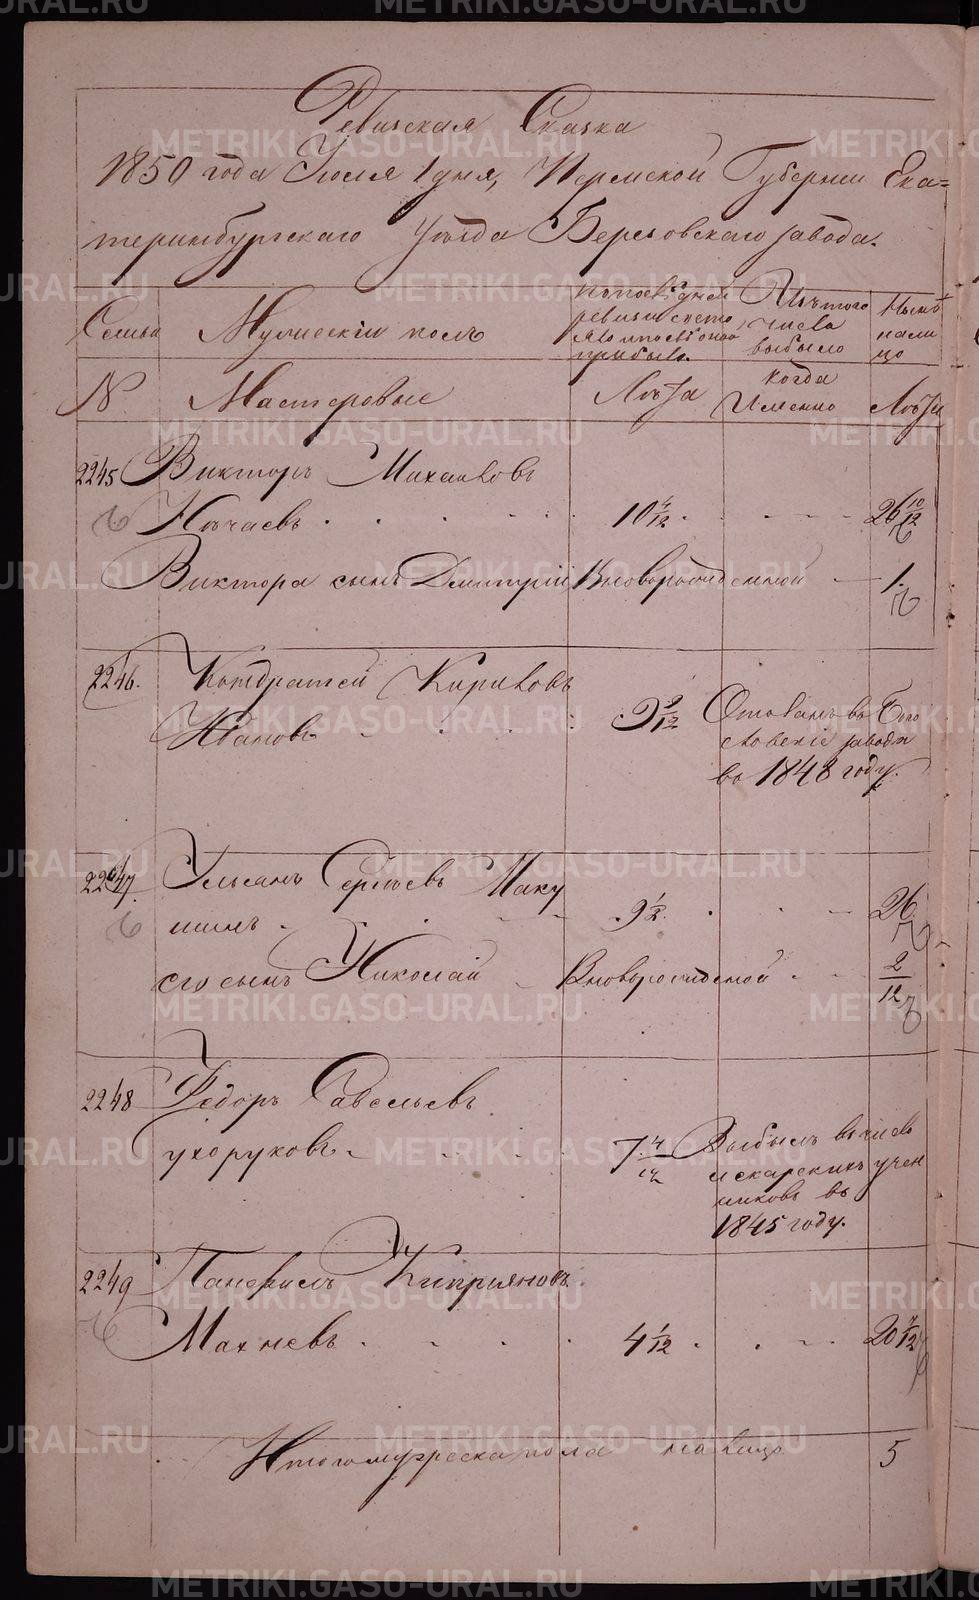 Ревизская Сказка
1850 года Июля 1 дня, Пермской Губернии Ека=
теринбургскаго Уѣзда Березовскаго завода.
Семьи
Мужескій полъ
По послѣдней
ревизіи состо
яло и послѣ оной
прибыло.
Изъ того
числа
выбыло
Нынѣ
на ли
цо
№
Мастеровые
Лѣта
когда
Именно
Лѣта
2245 Викторъ Михаиловъ
Нѣчаевъ 10 4/12 26 10/12
Виктора сынъ Дмитрій Вноворожденной 1.
2246. Кондратей Кириловъ
Ивановъ 9 9/12 Отованъ въ Бого
словскіе заводы
въ 1848 году.
2247. Ульянъ Сергѣевъ Маку
шинъ 9 1/2. 26
его сынъ Николай Вноворожденой 2/12
2248 Федоръ Савельевъ
ухоруковъ 7 4/12 Выбылъ въ числѣ
лекарскихъ учен
никовъ въ
1845 году.
2249 Панфилъ Киприяновъ
Махневъ 4 1/12 20 7/12
Итого мужеска пола на лицо 5
METRIKI.GASO-URAL.RU